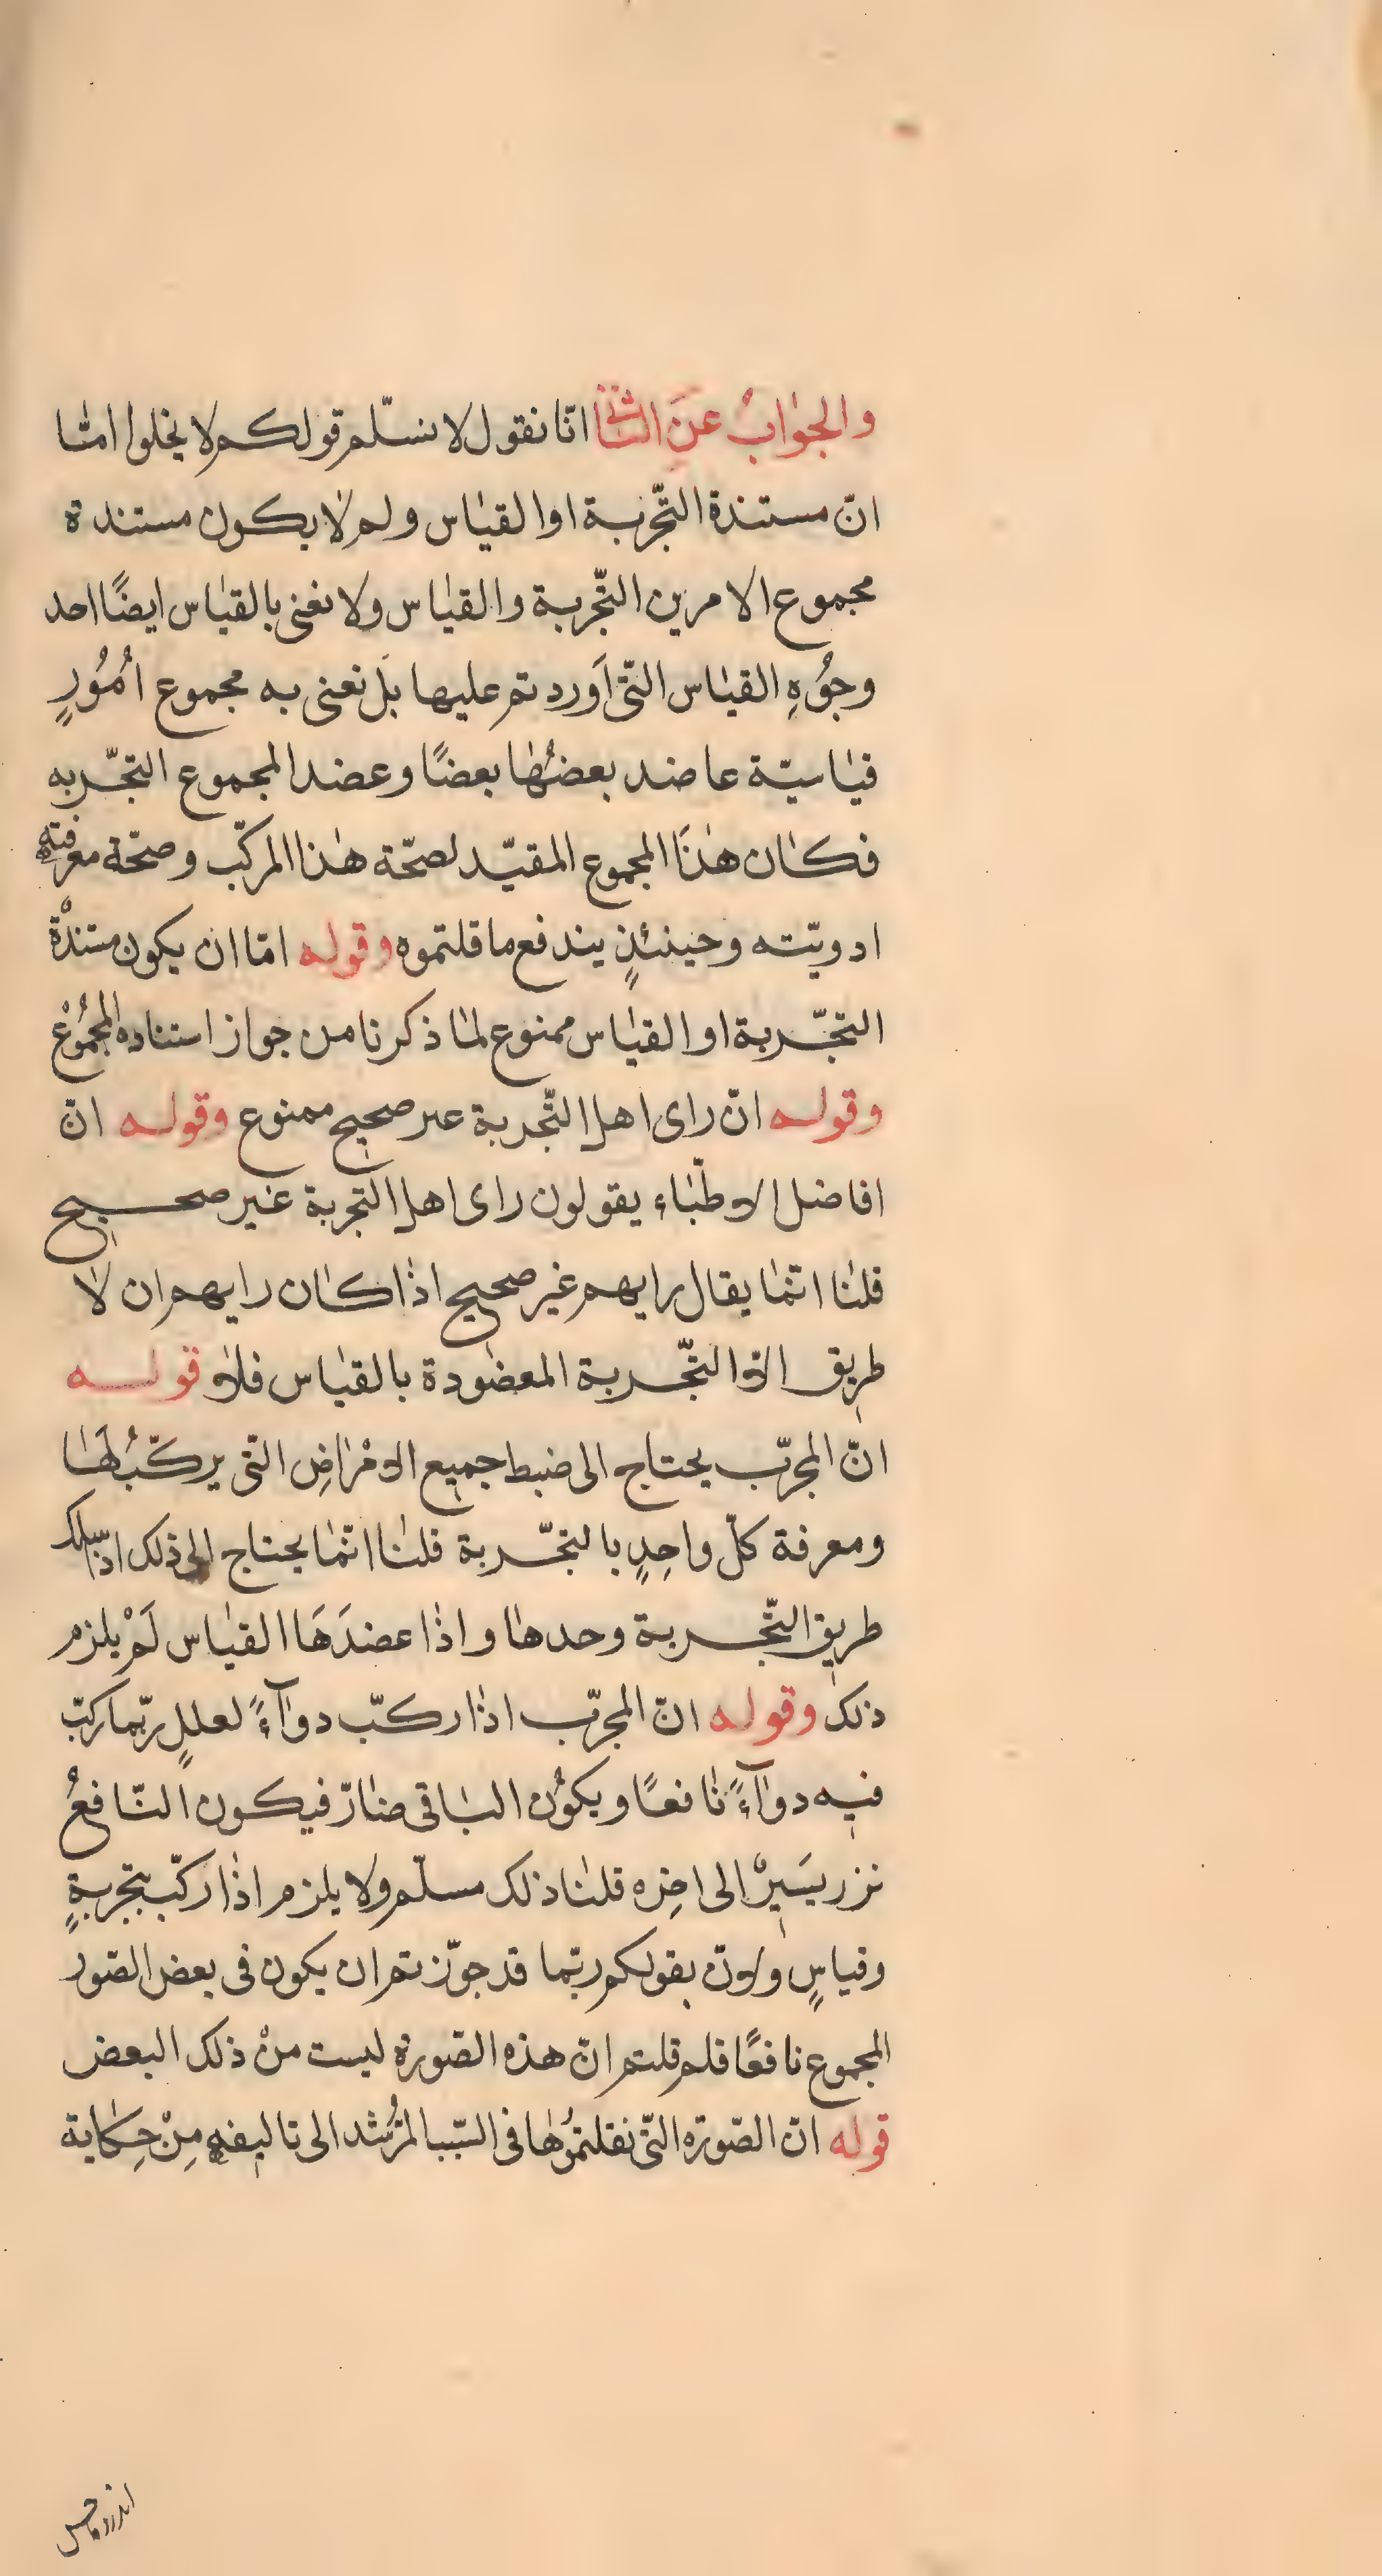 والجوابُ عنَ الثانى انّا نقول لا نسلّم قولكم لا يخلوا امّا
انّ مستندة التّجربة او القياس ولم لا يكون مستندة
مجموع الامرين التّجربة والقياس ولا نعنى بالقياس ايضًا احد
وجُوهِ القياس التّى اَوردتم عليها بل نعنى به مجموع اُمُورٍ
قياسيّة عاضد بعضُها بعضًا وعضد المجموع التجّربه
فكان هذَا المجموع المقيّد لصحّة هذا المركّب وصحّة معرفته
ادويّته وحينئذٍ يندفع ما قلتموه وقوله امّا ان يكون مستندة
التجّربة او القياس ممنوع لما ذكرنا من جواز استناده المجمُوع
وقوله انّ راى اهل التّجربة غير صحيح ممنوع وقوله انّ
افاضل الاطبّاء يقولون راى اهل التجربة غير صحيح
قلنا انّما يقال رايهم غير صحيح اذا كان رايهم ان لا
طريق الّا التّجربة المعضودة بالقياس فلا وقوله
انّ المجرّب يحتاج الى ضبط جميع الامْراضِ التّى يركّبُ لهَا
ومعرفة كلّ واحِدٍ بالتجّربة قلنا انّما يحتاج الى ذلك اذ سلك
طريق التّجربة وحدها واذا عضدَهَا القياس لَمْ يلزم
ذلك وقوله انّ المجرّب اذا ركّب دوآءً لعللٍ ربّما ركّب
فيه دوآءً نافعًا ويكوُن الباقى ضارّ فيكون النّافعُ
نزر يسَيرْ الى اخِره قلنا ذلك مسلّم ولا يلزم اذا ركّب بتجربةٍ
وقياسٍ ولانّ بقولكم ربّما قد جوّزتم ان يكون فى بعض الصّور
المجموع نافعًا فلم قلتم انّ هذه الصّورة ليست منْ ذلك البعض
قوله انّ الصّورة التّى نقلتمُوها فى السّبب المرُشد الى تاليفه مِنْ حِكاية
اندروماخس